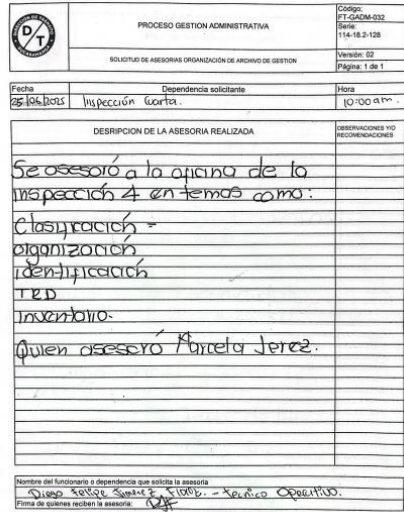 DIRECCIÓN DE TRÁNSITO
D/T
PROCESO GESTION ADMINISTRATIVA
SOLICITUD DE ASESORIAS ORGANIZACIÓN DE ARCHIVO DE GESTION
Código:
FT-GADM-032
Serie:
114-18.2-128
Versión: 02
Página: 1 de 1
Fecha Dependencia solicitante Hora
25/06/2025 Inspección Cuarta. 10:00 am.
DESRIPCION DE LA ASESORIA REALIZADA
OBSERVACIONES Y/O
RECOMENDACIONES
Se asesoró a la oficina de la
inspección 4 en temas como:
Clasificación -
organización
identificación
TRD
Inventario.
Quien asesoró Marcela Jerez.
Nombre del funcionario o dependencia que solicita la asesoria
Diego Felipe Jimenez - Tecnico Operativo.
Firma de quienes reciben la asesoria: